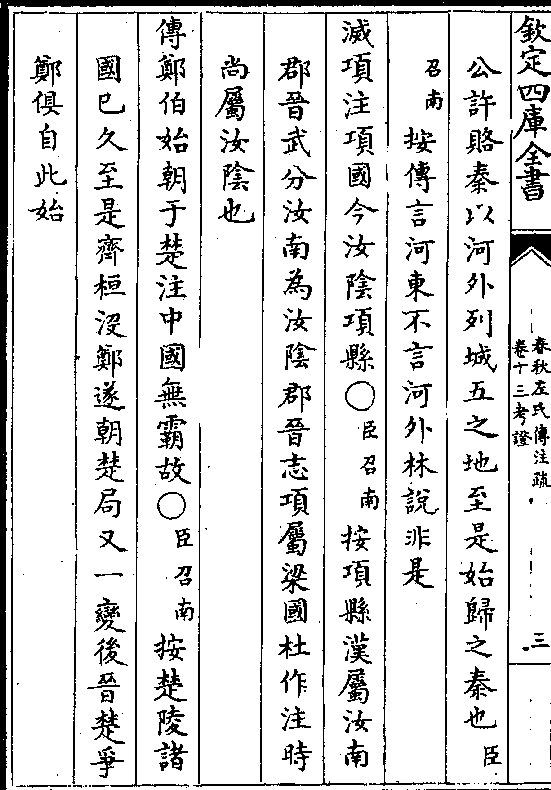 欽定四庫全書
春秋左氏傳注疏
卷十三考證
三
公許賂秦以河外列城五之地至是始歸之秦也臣
召南按傳言河東不言河外林說非是
滅項注項國今汝陰項縣○臣召南按項縣漢屬汝南
郡晉武分汝南為汝陰郡晉志項屬梁國杜作注時
尚屬汝陰也
傳鄭伯始朝于楚注中國無霸故○臣召南按楚陵諸
國已久至是齊桓沒鄭遂朝楚局又一變後晉楚爭
鄭俱自此始